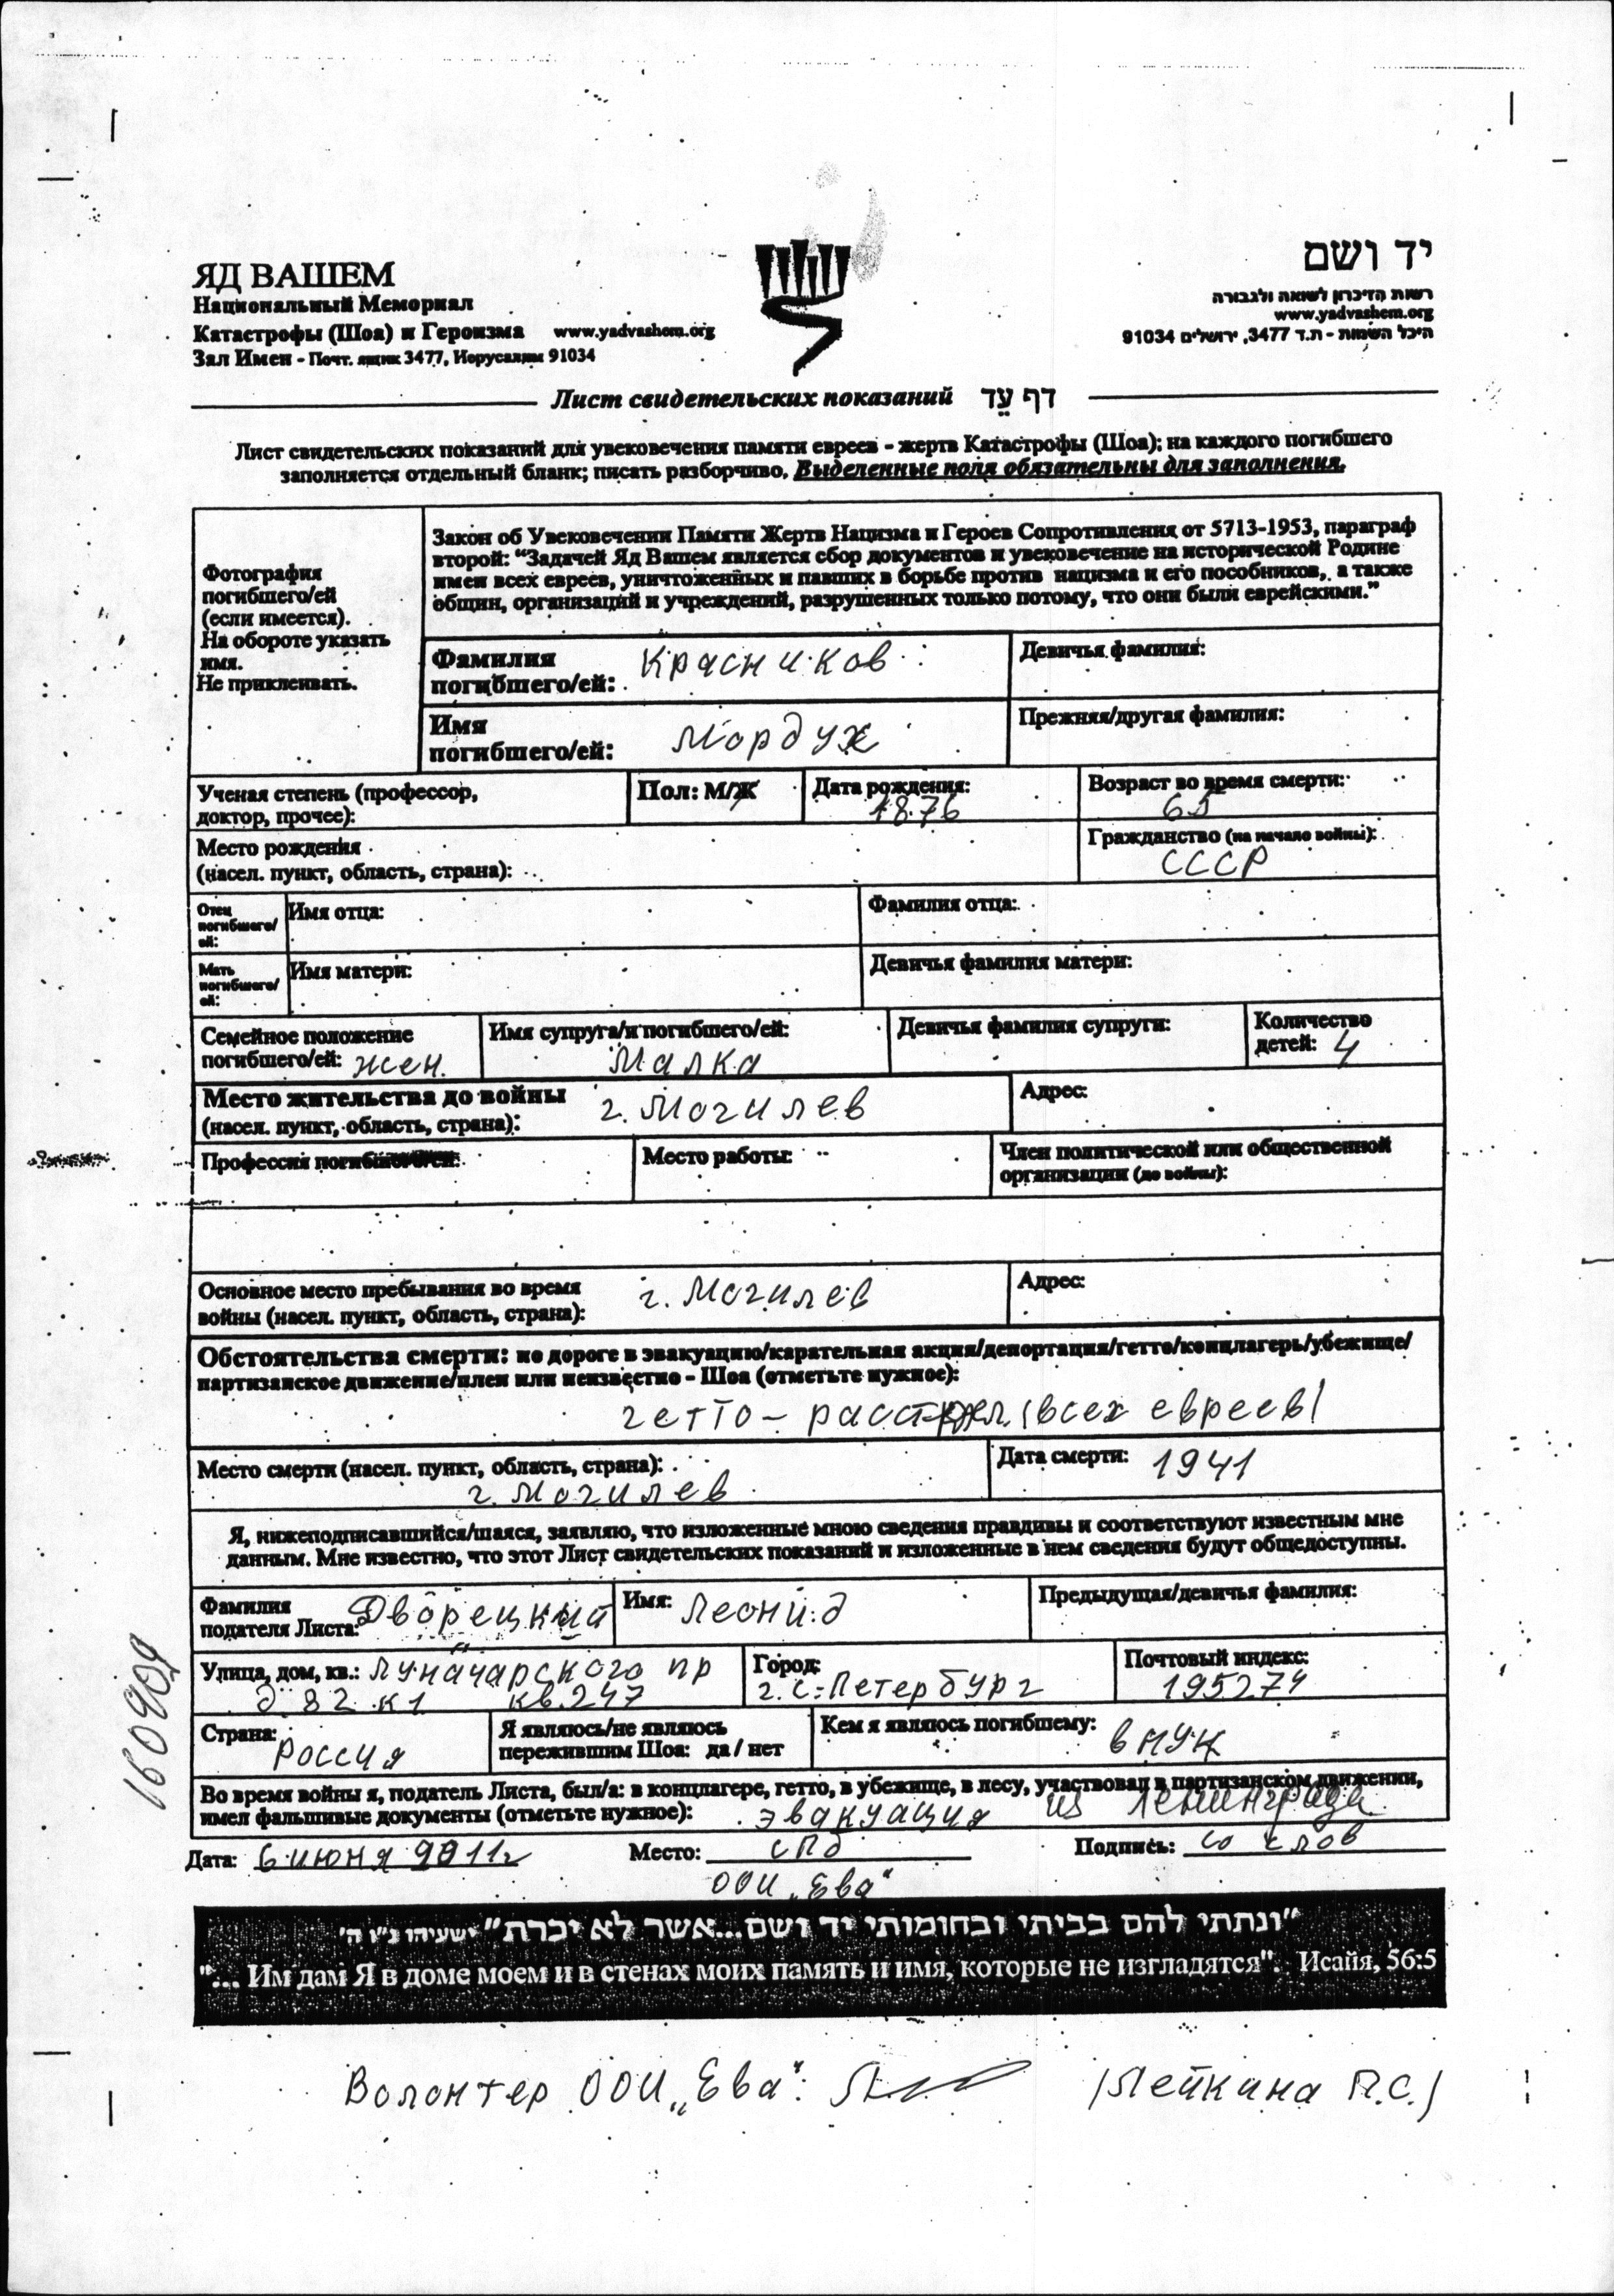 ЯД ВАШЕМ
Национальный Мемориал
Катастрофы (Шоа) и Героизма www.yadvashem.org
Зал Имен - Почт. ящик 3477, Иерусалим 91034
יד ושם
רשות הזיכרון לשואה ולגבורה
www.yadvashem.org
היכל השמות - ת.ד 3477, ירושלים 91034
Лист свидетельских показаний דף עֵד
Лист свидетельских показаний для увековечения памяти евреев - жертв Катастрофы (Шоа); на каждого погибшего
заполняется отдельный бланк; писать разборчиво. Выделенные поля обязательны для заполнения.
Фотография
погибшего/ей
(если имеется).
На обороте указать
имя.
Не приклеивать.
Закон об Увековечении Памяти Жертв Нацизма и Героев Сопротивления от 5713-1953, параграф
второй: “Задачей Яд Вашем является сбор документов и увековечение на исторической Родине
имен всех евреев, уничтоженных и павших в борьбе против нацизма и его пособников, а также
общин, организаций и учреждений, разрушенных только потому, что они были еврейскими.”
Фамилия
погибшего/ей: Красников
Девичья фамилия:
Имя
погибшего/ей: Мордух
Прежняя/другая фамилия:
Ученая степень (профессор,
доктор, прочее):
Пол: М/Ж
Дата рождения:
1876
Возраст во время смерти:
65
Место рождения
(насел. пункт, область, страна):
Гражданство (на начало войны):
СССР
Отец
погибшего/
ей:
Имя отца:
Фамилия отца:
Мать
погибшего/
ей:
Имя матери:
Девичья фамилия матери:
Семейное положение
погибшего/ей: жен.
Имя супруга/и погибшего/ей:
Малка
Девичья фамилия супруги:
Количество
детей: 4
Место жительства до войны
(насел. пункт, область, страна): г. Могилев
Адрес:
Профессия погибшего/ей:
Место работы:
Член политической или общественной
организации (до войны):
Основное место пребывания во время
войны (насел. пункт, область, страна): г. Могилев
Адрес:
Обстоятельства смерти: по дороге в эвакуацию/карательная акция/депортация/гетто/концлагерь/убежище/
партизанское движение/плен или неизвестно - Шоа (отметьте нужное):
гетто - расстрел (всех евреев)
Место смерти (насел. пункт, область, страна):
г. Могилев
Дата смерти: 1941
Я, нижеподписавшийся/шаяся, заявляю, что изложенные мною сведения правдивы и соответствуют известным мне
данным. Мне известно, что этот Лист свидетельских показаний и изложенные в нем сведения будут общедоступны.
Фамилия
подателя Листа: Дворецкий
Имя: Леонид
Предыдущая/девичья фамилия:
Улица, дом, кв.: Луначарского пр
д 82 к1 кв.247
Город:
г. С-Петербург
Почтовый индекс:
195274
Страна:
Россия
Я являюсь/не являюсь
пережившим Шоа: да / нет
Кем я являюсь погибшему:
внук
Во время войны я, податель Листа, был/а: в концлагере, гетто, в убежище, в лесу, участвовал в партизанском движении,
имел фальшивые документы (отметьте нужное): эвакуация из Ленинграда
Дата: 6 июня 2011г
Место: СПб
ООИ „Ева“
Подпись: со слов
"ונתתי להם בביתי ובחומותי יד ושם...אשר לא יכרת" ישעיהו נ"ו ה'
"... Им дам Я в доме моем и в стенах моих память и имя, которые не изгладятся". Исайя, 56:5
Волонтер ООИ „Ева“: (Лейкина П.С.)